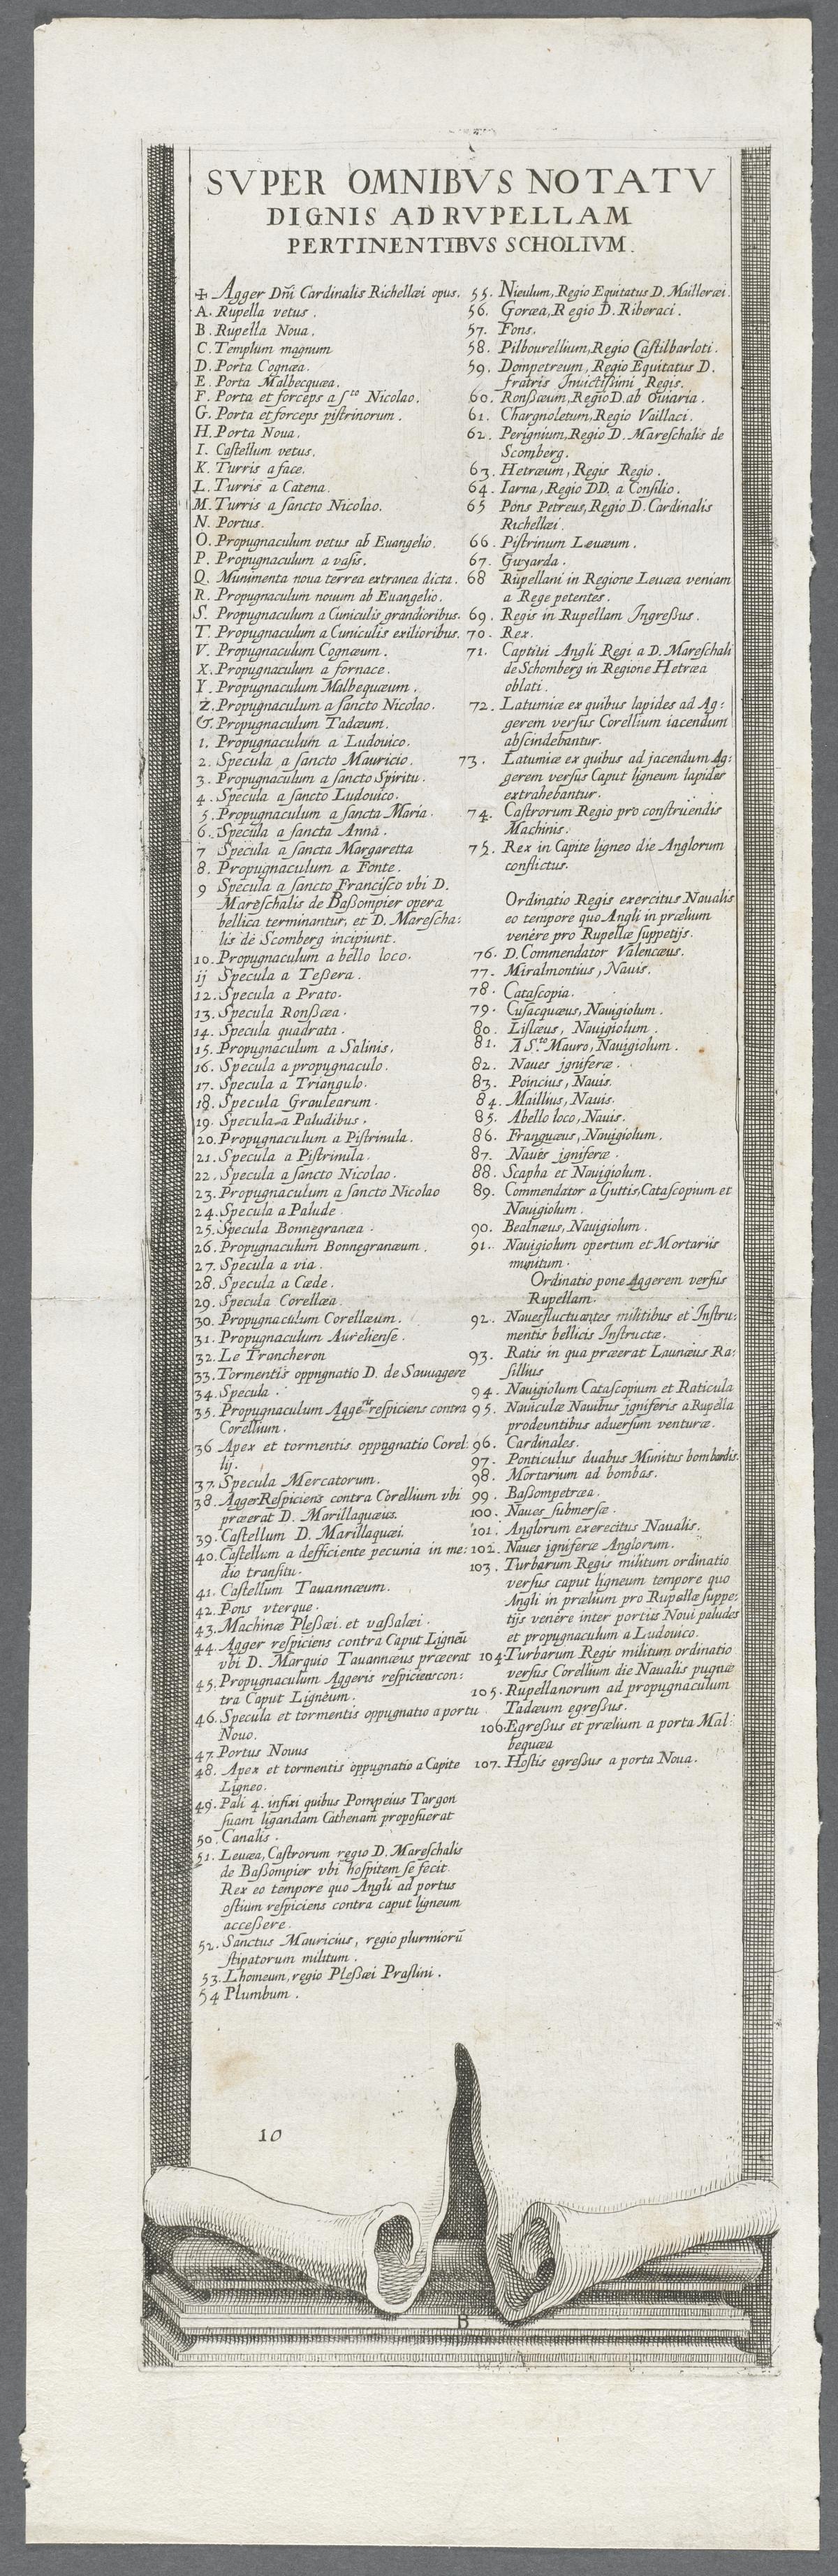 SVPER OMNIBVS NOTATV
DIGNIS AD RVPELLAM
PERTINENTIBVS SCHOLIVM.
✠ Agger Dñi Cardinalis Richellæi opus.
A. Rupella vetus.
B. Rupella Noua.
C. Templum magnum
D. Porta Cognæa.
E. Porta Malbecquæa.
F. Porta et forceps a sto Nicolao.
G. Porta et forceps pistrinorum.
H. Porta Noua.
I. Castellum vetus.
K. Turris a face.
L. Turris a Catena.
M. Turris a sancto Nicolao.
N. Portus.
O. Propugnaculum vetus ab Euangelio.
P. Propugnaculum a vasis.
Q. Munimenta noua terrea extranea dicta.
R. Propugnaculum nouum ab Euangelio.
S. Propugnaculum a Cuniculis grandioribus.
T. Propugnaculum a Cuniculis exilioribus.
V. Propugnaculum Cognæum.
X. Propugnaculum a fornace.
Y. Propugnaculum Malbequæum.
Z. Propugnaculum a sancto Nicolao.
&. Propugnaculum Tadæum.
1. Propugnaculum a Ludouico.
2. Specula a sancto Mauricio.
3. Propugnaculum a sancto Spiritu.
4. Specula a sancto Ludouico.
5. Propugnaculum a sancta Maria.
6. Specula a sancta Anna.
7 Specula a sancta Margaretta
8. Propugnaculum a Fonte.
9 Specula a sancto Francisco vbi D.
Mareschalis de Baßompier opera
bellica terminantur, et D. Marescha:
lis de Scomberg incipiunt.
10. Propugnaculum a bello loco.
ij Specula a Teßera.
12. Specula a Prato.
13. Specula Ronßæa.
14. Specula quadrata.
15. Propugnaculum a Salinis.
16. Specula a propugnaculo.
17. Specula a Triangulo.
18. Specula Groulearum.
19. Specula a Paludibus.
20. Propugnaculum a Pistrinula.
21. Specula a Pistrinula.
22. Specula a sancto Nicolao.
23. Propugnaculum a sancto Nicolao
24. Specula a Palude.
25. Specula Bonnegranæa.
26. Propugnaculum Bonnegranæum.
27. Specula a via.
28. Specula a Cæde.
29. Specula Corellæa.
30. Propugnaculum Corellæum.
31. Propugnaculum Aureliense.
32. Le Trancheron
33. Tormentis oppngnatio D. de Sauuagere
34. Specula.
35. Propugnaculum Aggeris respiciens contra
Corellium.
36 Apex et tormentis oppugnatio Corel:
lij.
37. Specula Mercatorum.
38. Agger Respiciens contra Corellium vbi
præerat D. Marillaquæus.
39. Castellum D. Marillaquæi.
40. Castellum a defficiente pecunia in me:
dio transitu.
41. Castellum Tauannæum.
42. Pons vterque.
43. Machinæ Pleßæi et vaßalæi.
44. Agger respiciens contra Caput Ligneũ
vbi D. Marquio Tauannæus præerat
45. Propugnaculum Aggeris respiciens con:
tra Caput Ligneum.
46. Specula et tormentis oppugnatio a portu
Nouo.
47. Portus Nouus
48. Apex et tormentis oppugnatio a Capite
Ligneo.
49. Pali 4. infixi quibus Pompeius Targon
suam ligandam Cathenam proposuerat
50. Canalis.
51. Leuæa, Castrorum regio D. Mareschalis
de Baßompier vbi hospitem se fecit
Rex eo tempore quo Angli ad portus
ostium respiciens contra caput ligneum
acceßere.
52. Sanctus Mauricius, regio plurmiorũ
stipatorum militum.
53. Lhomeum, regio Pleßæi Praslini.
54 Plumbum.
55. Nieulum, Regio Equitatus D. Mailleræi.
56. Goræa, Regio D. Riberaci.
57. Fons.
58. Pilbourellium, Regio Castilbarloti.
59. Dompetreum, Regio Equitatus D.
fratris Inuictissimi Regis.
60. Ronßæum, Regio D. ab Ouiaria.
61. Chargnoletum, Regio Vaillaci.
62. Perignium, Regio D. Mareschalis de
Scomberg.
63. Hetræum, Regis Regio.
64. Iarna, Regio DD. a Consilio.
65 Pons Petreus, Regio D. Cardinalis
Richellæi.
66. Pistrinum Leuæum.
67. Guyarda.
68 Rupellani in Regione Leuæa veniam
a Rege petentes.
69. Regis in Rupellam Ingreßus.
70. Rex.
71. Captiui Angli Regi a D. Mareschali
de Schomberg in Regione Hetræa
oblati.
72. Latumiæ ex quibus lapides ad Ag:
gerem versus Corellium iacendum
abscindebantur.
73. Latumiæ ex quibus ad jacendum Ag:
gerem versus Caput ligneum lapides
extrahebantur.
74. Castrorum Regio pro construendis
Machinis.
75. Rex in Capite ligneo die Anglorum
conflictus.
Ordinatio Regis exercitus Naualis
eo tempore quo Angli in prælium
venére pro Rupellæ suppetijs.
76. D. Commendator Valencæus.
77. Miralmontius, Nauis.
78. Catascopia.
79. Cusacquæus, Nauigiolum.
80. Lislæus, Nauigiolum.
81. A S.to Mauro, Nauigiolum.
82. Naues igniferæ.
83. Poincius, Nauis.
84. Maillius, Nauis.
85. Abello loco, Nauis.
86. Franguæus, Nauigiolum.
87. Naues igniferæ.
88. Scapha et Nauigiolum.
89. Commendator a Guttis, Catascopium et
Nauigiolum.
90. Bealnæus, Nauigiolum.
91. Nauigiolum opertum et Mortariis
munitum.
Ordinatio pone Aggerem versus
Rupellam.
92. Naues fluctuantes militibus et Instru:
mentis bellicis Instructæ.
93. Ratis in qua præerat Launæus Ra:
sillius
94. Nauigiolum Catascopium et Raticula
95. Nauiculæ Nauibus igniferis a Rupella
prodeuntibus aduersum venturæ.
96. Cardinales.
97. Ponticulus duabus Munitus bombardis.
98. Mortarium ad bombas.
99. Baßompetræa.
100. Naues submersæ.
101. Anglorum exerecitus Naualis.
102. Naues igniferæ Anglorum.
103. Turbarum Regis militum ordinatio
versus caput ligneum tempore quo
Angli in prælium pro Rupellæ suppe:
tijs venére inter portus Noui paludes
et propugnaculum a Ludouico.
104. Turbarum Regis militum ordinatio
versus Corellium die Naualis pugnæ
105. Rupellanorum ad propugnaculum
Tadæum egreßus.
106. Egreßus et prælium a porta Mal:
bequæa
107. Hostis egreßus a porta Noua.
10
B